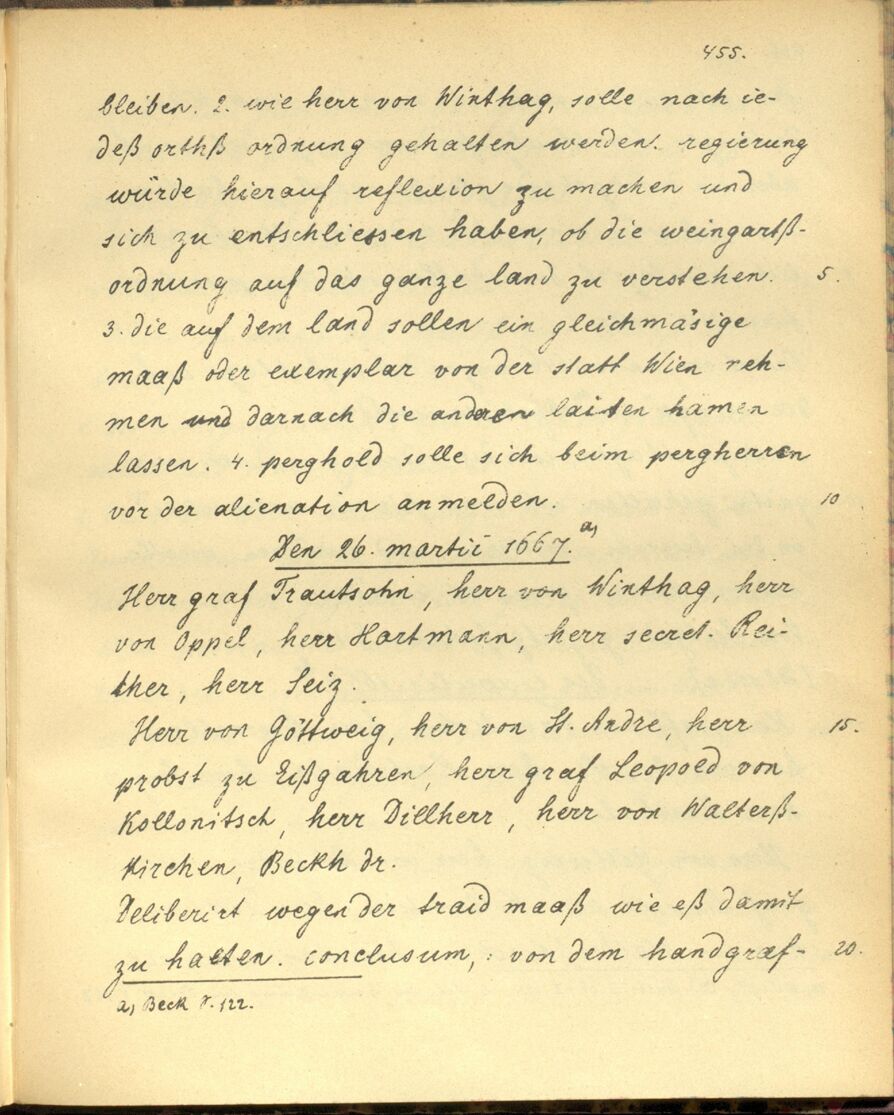 455.
bleiben. 2. wie herr von Winthag, solle nach ie-
deß orthß ordnung gehalten werden. regierung
würde hierauf reflexion zu machen und
sich zu entschliessen haben, ob die weingartß-
ordnung auf das ganze land zu verstehen. 5.
3. die auf dem land sollen ein gleichmäsige
maaß oder exemplar von der statt Wien neh-
men und darnach die anderen laiten hamen
lassen. 4. perghold solle sich beim pergherren
vor der alienation anmelden. 10
Den 26. martii 1667. a)
Herr graf Trautsohn, herr von Winthag, herr
von Oppel, herr Hartmann, herr secret. Rei-
ther, herr Seiz.
Herr von Göttweig, herr von St. Andre, herr 15.
probst zu Eißgahren, herr graf Leopold von
Kollonitsch, herr Dillherr, herr von Walterß-
kirchen, Beckh dr.
Deliberirt wegen der traid maaß wie eß damit
zu halten. conclusum,: von dem handgraf- 20.
a) Beck f. 122.